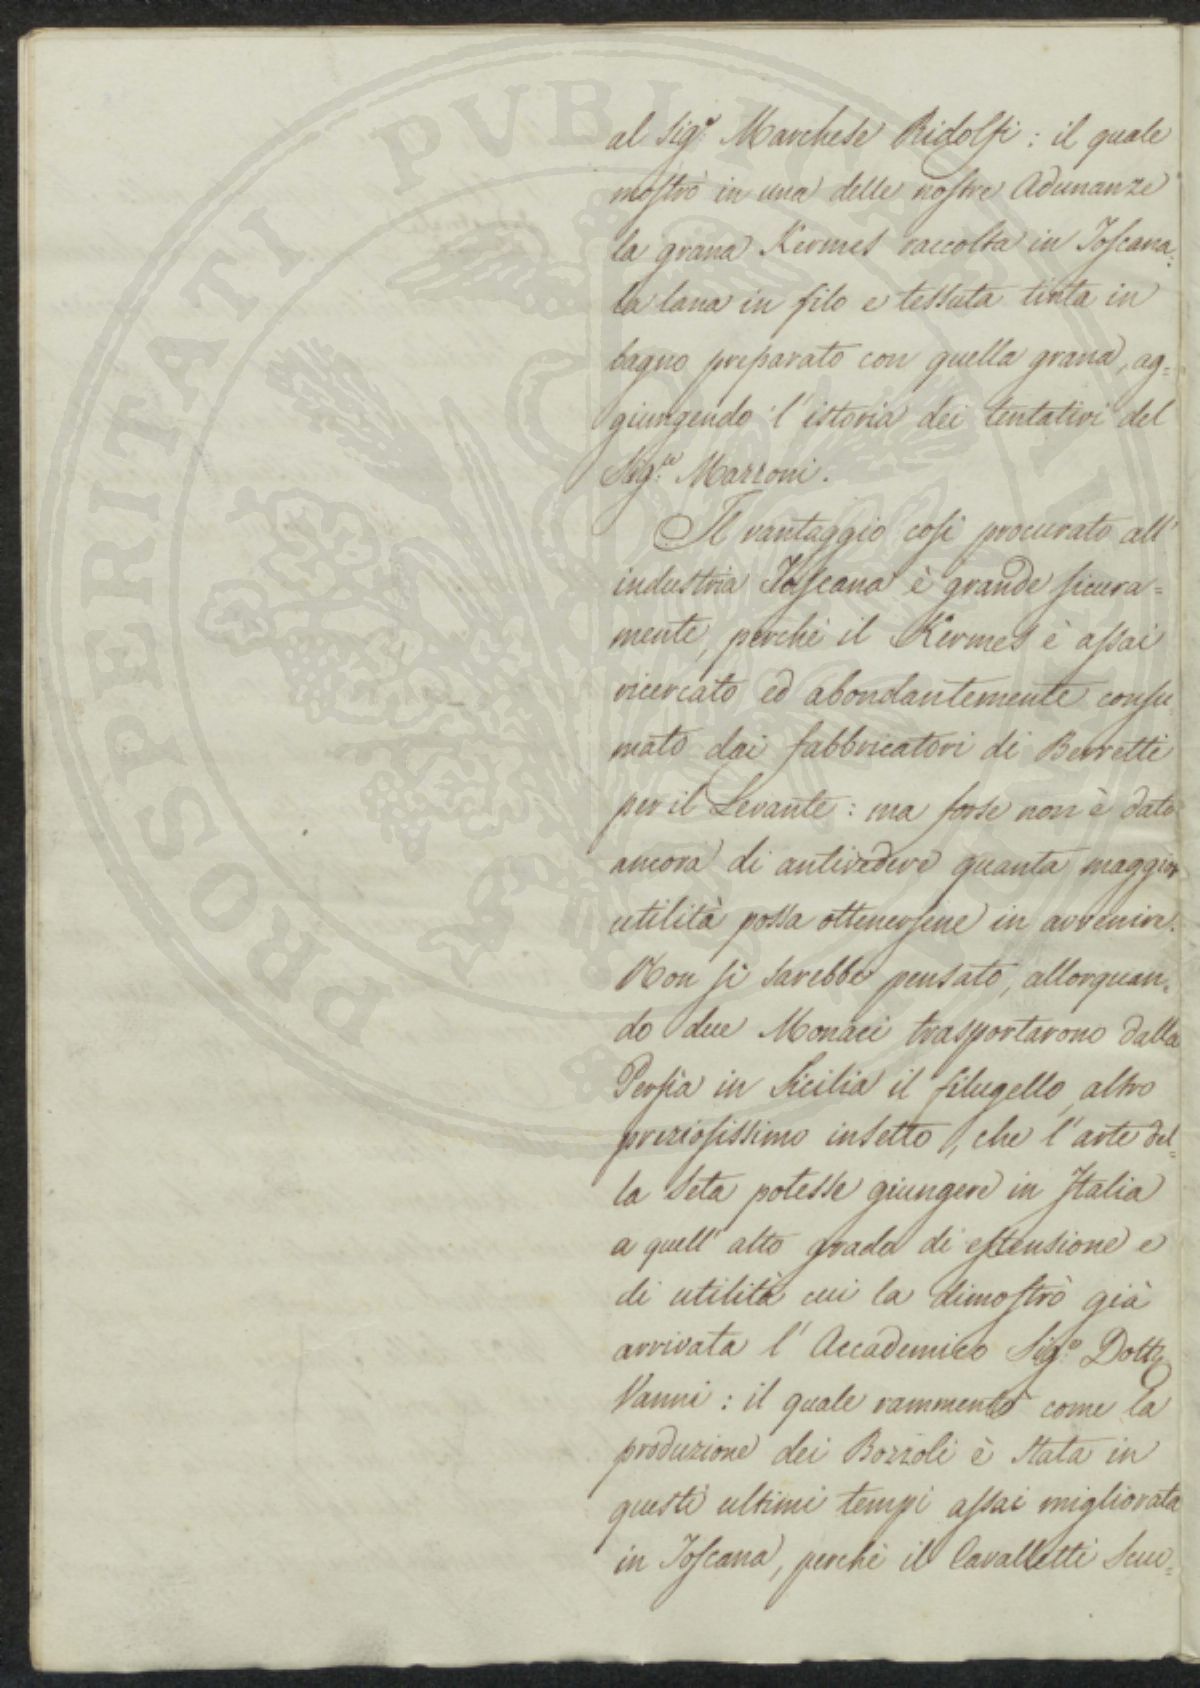 al Sig.r Marchese Ridolfi: il quale
mostrò in una delle nostre Adunanze
la grana Kermes raccolta in Toscana:
la lana in filo e tessuta tinta in
bagno preparato con quella grana, ag=
giungendo l'istoria dei tentativi del
Sig.re Marzoni.
Il vantaggio così procurato all'
industria Toscana è grande sicura=
mente, perchè il Kermes è assai
ricercato ed abondantemente consu=
mato dai fabbricatori di Berretti
per il Levante: ma forse non è dato
ancora di antivedere quanta maggior
utilità possa ottenersene in avvenire.
Non si sarebbe pensato, allorquan=
do due Monaci trasportarono dalla
Persia in Sicilia il filugello, altro
preziosissimo insetto, che l'arte del=
la Seta potesse giungere in Italia
a quell'alto grado di estensione e
di utilità cui la dimostrò già
arrivata l'Accademico Sig.r Dott.r
Vanni: il quale rammentò come la
produzione dei Bozzoli è stata in
questi ultimi tempi assai migliorata
in Toscana, perchè il Cavalletti Scuo=
PROSPERITATI PVBLICAE